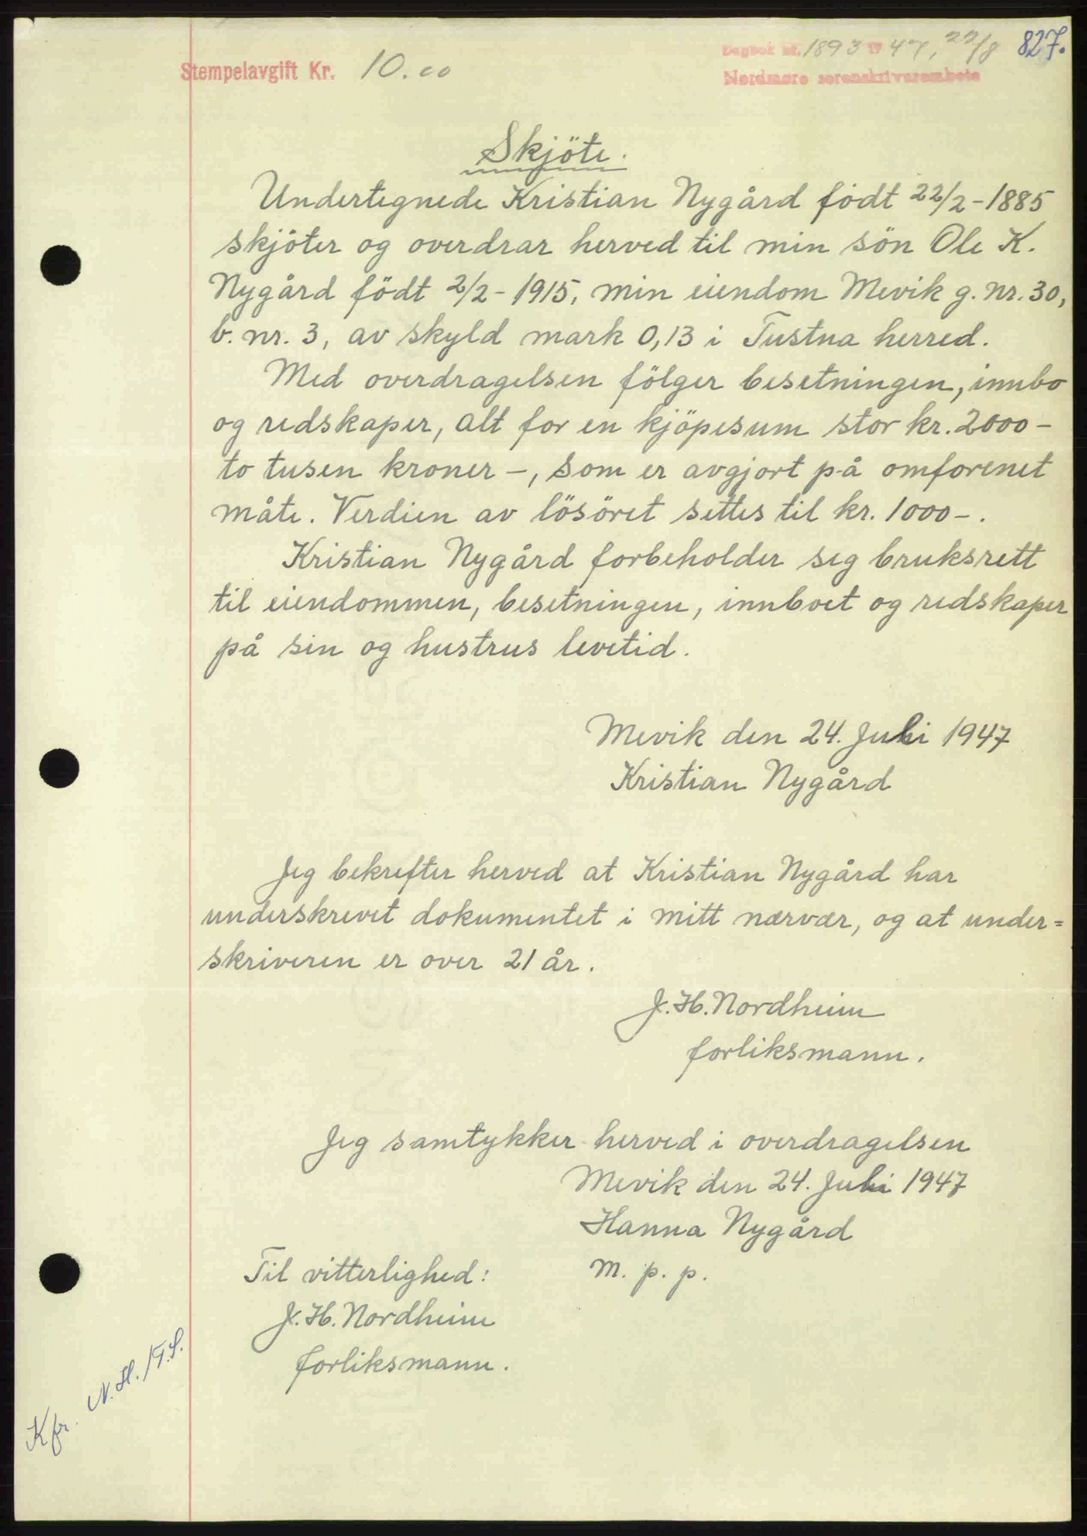 Stempelavgift Kr. 10.00
Dagbok nr. 1893 19 47, 22/8 827.
Nordmøre sorenskriverembete
Skjöte.
Undertegnede Kristian Nygård födt 22/2-1885
skjöter og overdrar herved til min sön Ole K.
Nygård födt 2/2-1915, min eiendom Mevik g.nr.30,
b.nr. 3, av skyld mark 0,13 i Tustna herred.
Med overdragelsen fölger besetningen, innbo
og redskaper, alt for en kjöpesum stor kr. 2000-
to tusen kroner-, som er avgjort på omforenet
måte. Verdien av lösöret settes til kr. 1000-.
Kristian Nygård forbeholder seg bruksrett
til eiendommen, besetningen, innboet og redskaper
på sin og hustrus levetid.
Mevik den 24. Juli 1947
Kristian Nygård
Jeg bekrefter herved at Kristian Nygård har
underskrevet dokumentet i mitt nærvær, og at under=
skriveren er over 21 år.
J. H. Nordheim
forliksmann.
Jeg samtykker herved i overdragelsen
Mevik den 24. Juli 1947
Hanna Nygård
m. p. p.
Til vitterlighed:
J. H. Nordheim
forliksmann.
Kfr. N.H./